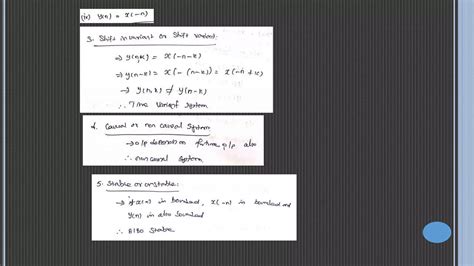 (iv) y(n) = x(-n)
3. Shift invariant or Shift variant:
⇒ y(n,k) = x(-n-k)
⇒ y(n-k) = x(-(n-k)) = x(-n+k)
→ y(n,k) ≠ y(n-k)
∴ Time Variant System
4. Causal or non causal System
→ o/p depends on future i/p also
∴ non causal System
5. Stable or unstable:
→ if x(n) is bounded, x(-n) is bounded and
y(n) is also bounded
∴ BIBO Stable